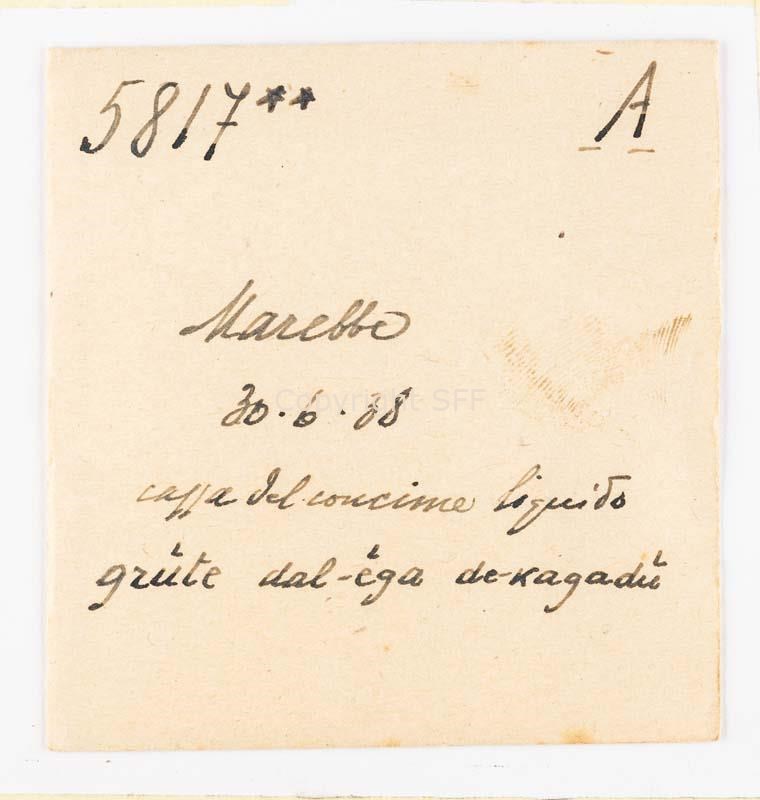 5817** A
Marebbe
30.6.38
Copyright SFF
cassa del concime liquido
grǘte dal-ëga de-kagadǘ